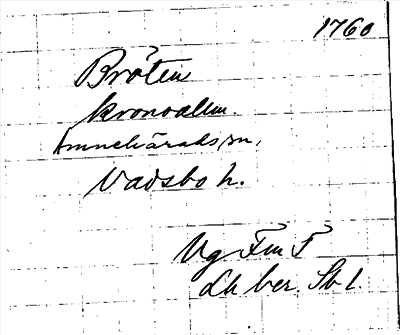 1760
Bröten
kronoallm.
Amnehärads sn,
Vadsbo h.
Vg Fm F
Lh ber. Sb 1.